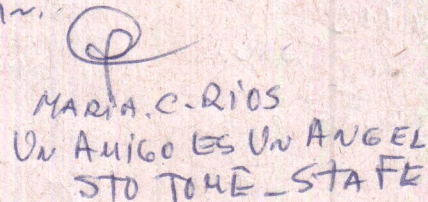 MARIA.C.RIOS
UN AMIGO ES UN ANGEL
STO TOME_STA FE